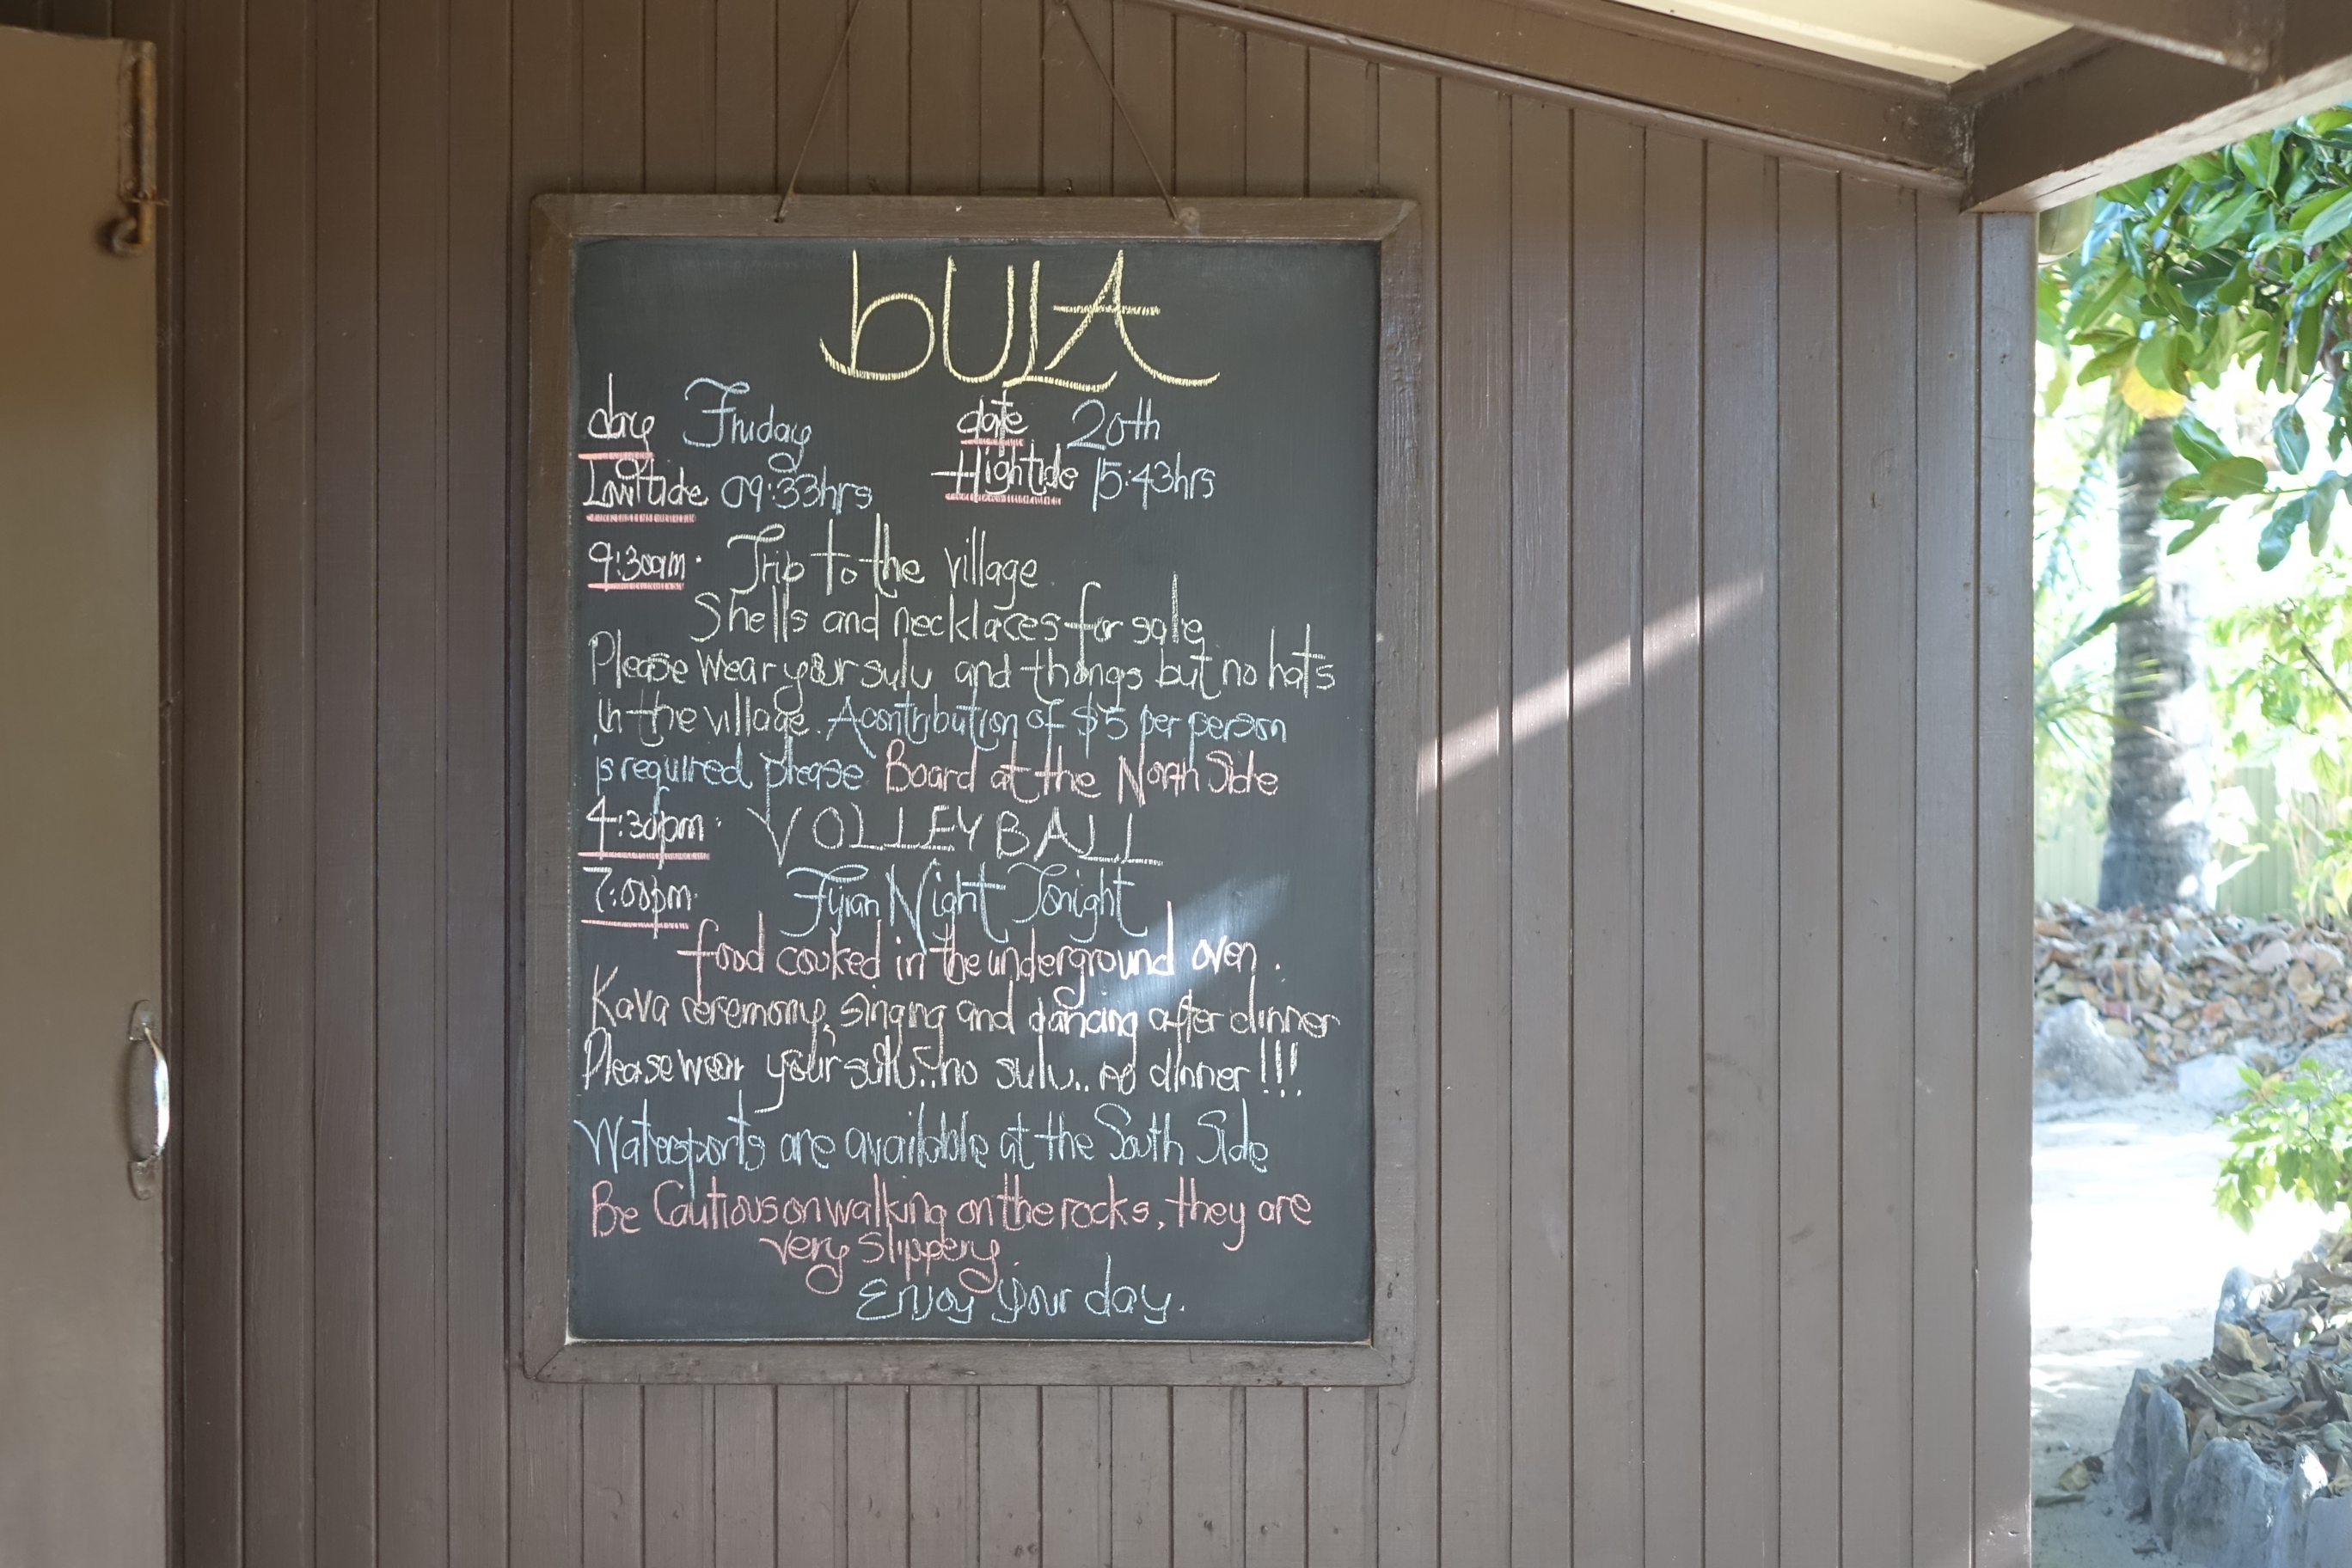 bULA
day Friday date 20th
Lowtide 09:33hrs Hightide 15:43hrs
9:30am. Trip to the village
Shells and necklaces for sale
Please wear your sulu and thongs but no hats
in the village. A contribution of $5 per person
is required please Board at the North Side
4:30pm: VOLLEYBALL
7:00pm. Fijian Night Tonight
food cooked in the underground oven.
Kava ceremony, singing and dancing after dinner
Please wear your sulu..no sulu.. no dinner!!!
Watersports are available at the South Side
Be Cautious on walking on the rocks, they are
very slippery.
Enjoy your day.